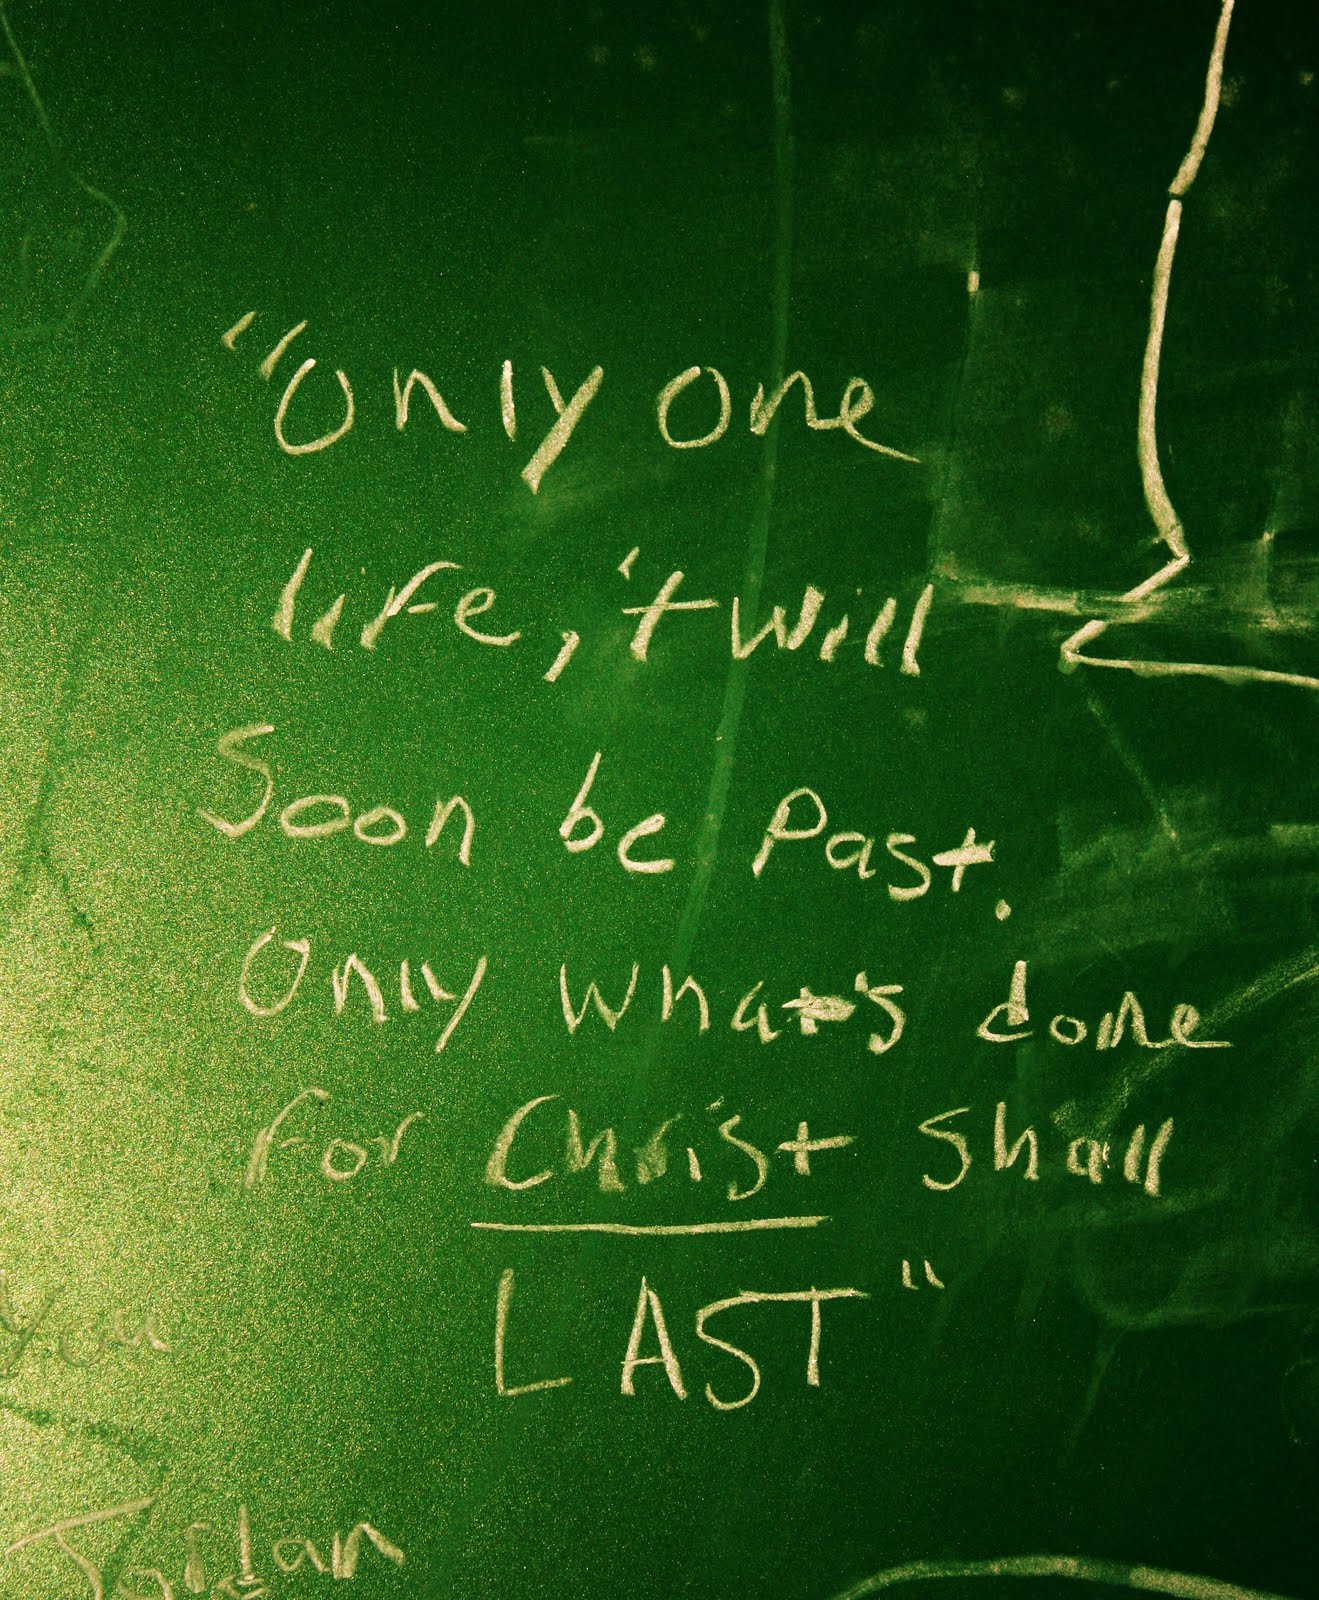 "Only one
life, 'twill
Soon be Past.
Only what's done
for Christ shall
LAST"
you
Jordan